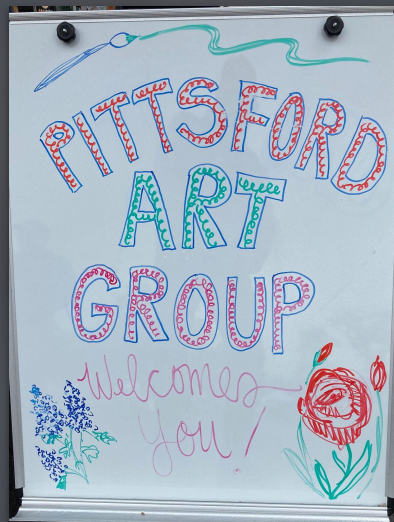 PITTSFORD
ART
GROUP
Welcomes
You!